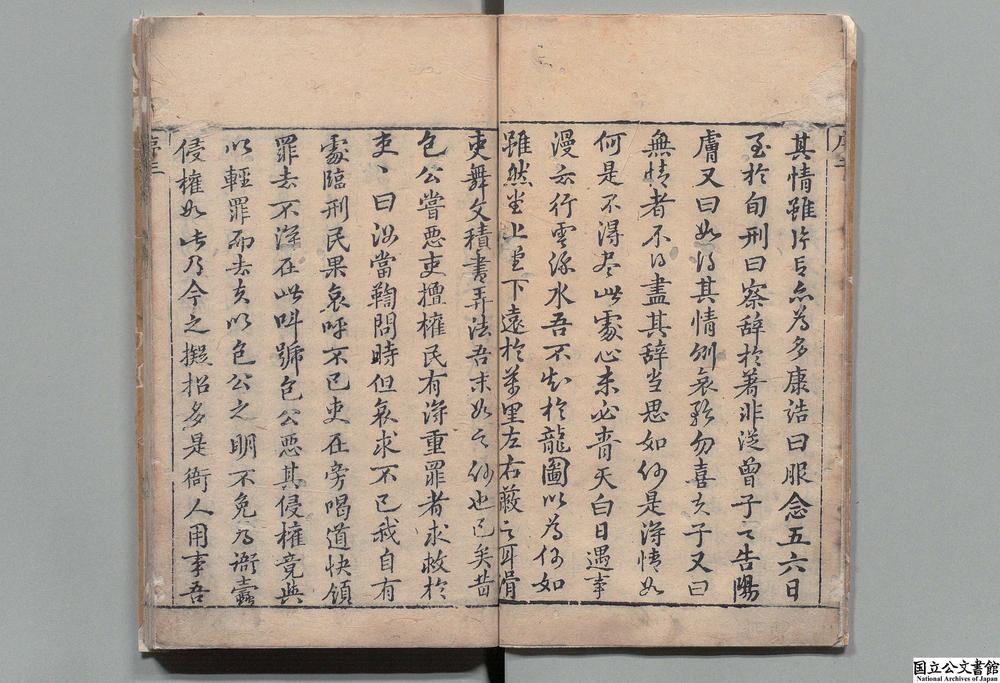 其情雖片言亦為多康誥曰服念五六日
至於旬刑曰察辭於著非從曾子之告陽
膚又曰如得其情則哀矜勿喜夫子又曰
無情者不得盡其辞当思如何是淂情如
何是不得尽此處心未必青天白日遇事
漫云行雲流水吾不知於龍圖以為何如
雖然堂上堂下遠於萬里左右蔽之耳骨
吏舞文積書弄法吾末如之何也已矣昔
包公嘗悪吏擅權民有淂重罪者求救於
吏〻曰汝當鞫問時但哀求不已我自有
處臨刑民果哀呼不已吏在旁喝道快領
罪去不淂在此叫號包公悪其侵權竟與
以輕罪而去夫以包公之明不免為衙蠹
侵權如此乃今之擬招多是衙人用事吾
序三
国立公文書館
National Archives of Japan